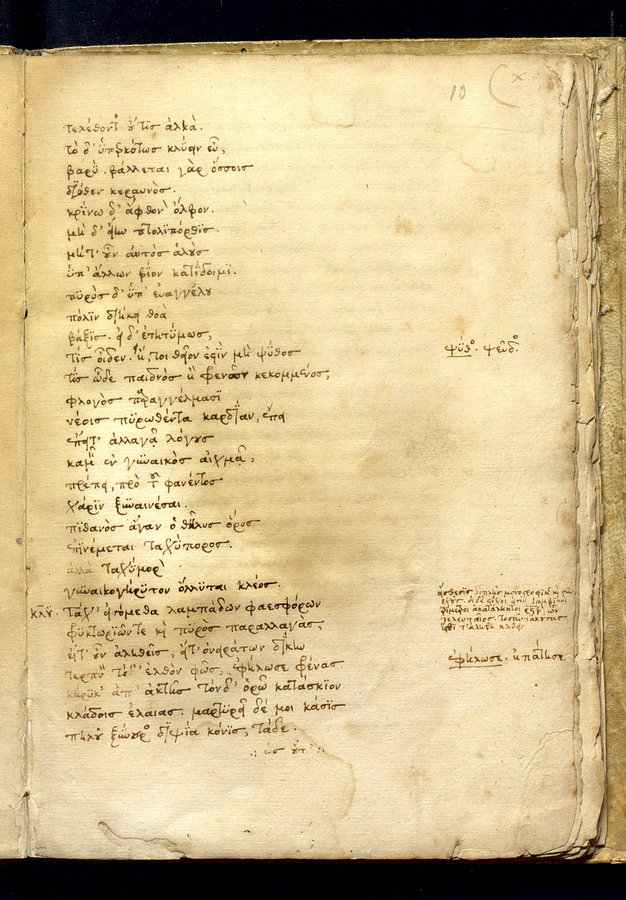 τελέθοντος οὔτις ἀλκά.
τὸ δ' ὑπερκότως κλύειν εὖ,
βαρύ. βάλλεται γὰρ ὄσσοις
διόθεν κεραυνός.
κρίνω δ' ἄφθονον ὄλβον.
μὴ δ' εἴην πτολιπόρθης
μήτ' οὖν αὐτὸς ἁλοὺς
ὑπ' ἄλλων βίον κατίδοιμι.
πυρὸς δ' ὑπ' εὐαγγέλου
πόλιν διήκει θοὰ
βάξις. εἰ δ' ἐτητύμως,
τίς οἶδεν. ἤ τοι θεῖον ἐστὶν μὴ ψύθος
ψύθος. ψεῦδος.
τίς ὧδε παιδνὸς ἢ φρενῶν κεκομμένος,
φλογὸς παραγγέλμασι
νέοις πυρωθέντα καρδίαν,
ἀλλαγᾷ λόγου
καμεῖν ἐν γυναικὸς αἰχμᾷ,
πρέπει, πρὸ τοῦ φανέντος
χάριν ξυναινέσαι.
πιθανὸς ἄγαν ὁ θῆλυς ὅρος
ἐπινέμεται ταχύπορος.
ἀλλὰ ταχύμορον
γυναικογήρυτον ὄλλυται κλέος.
κλυ. Τάχ' εἰσόμεθα λαμπάδων φαεσφόρων
φρυκτωριῶν τε καὶ πυρὸς παραλλαγάς,
εἴτ' οὖν ἀληθεῖς, εἴτ' ὀνειράτων δίκην
τερπνὸν τόδ' ἐλθὸν φῶς, ἐφήλωσε φρένας
ἐφήλωσε. ἠπάτησε
κήρυκ' ἀπ' ἀκτῆς τόνδ' ὁρῶ κατάσκιον
κλάδοις ἐλαίας. μαρτυρεῖ δέ μοι κάσις
πηλοῦ ξύνουρος διψία κόνις, τάδε.